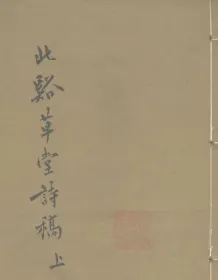 此谿草堂詩稿 上